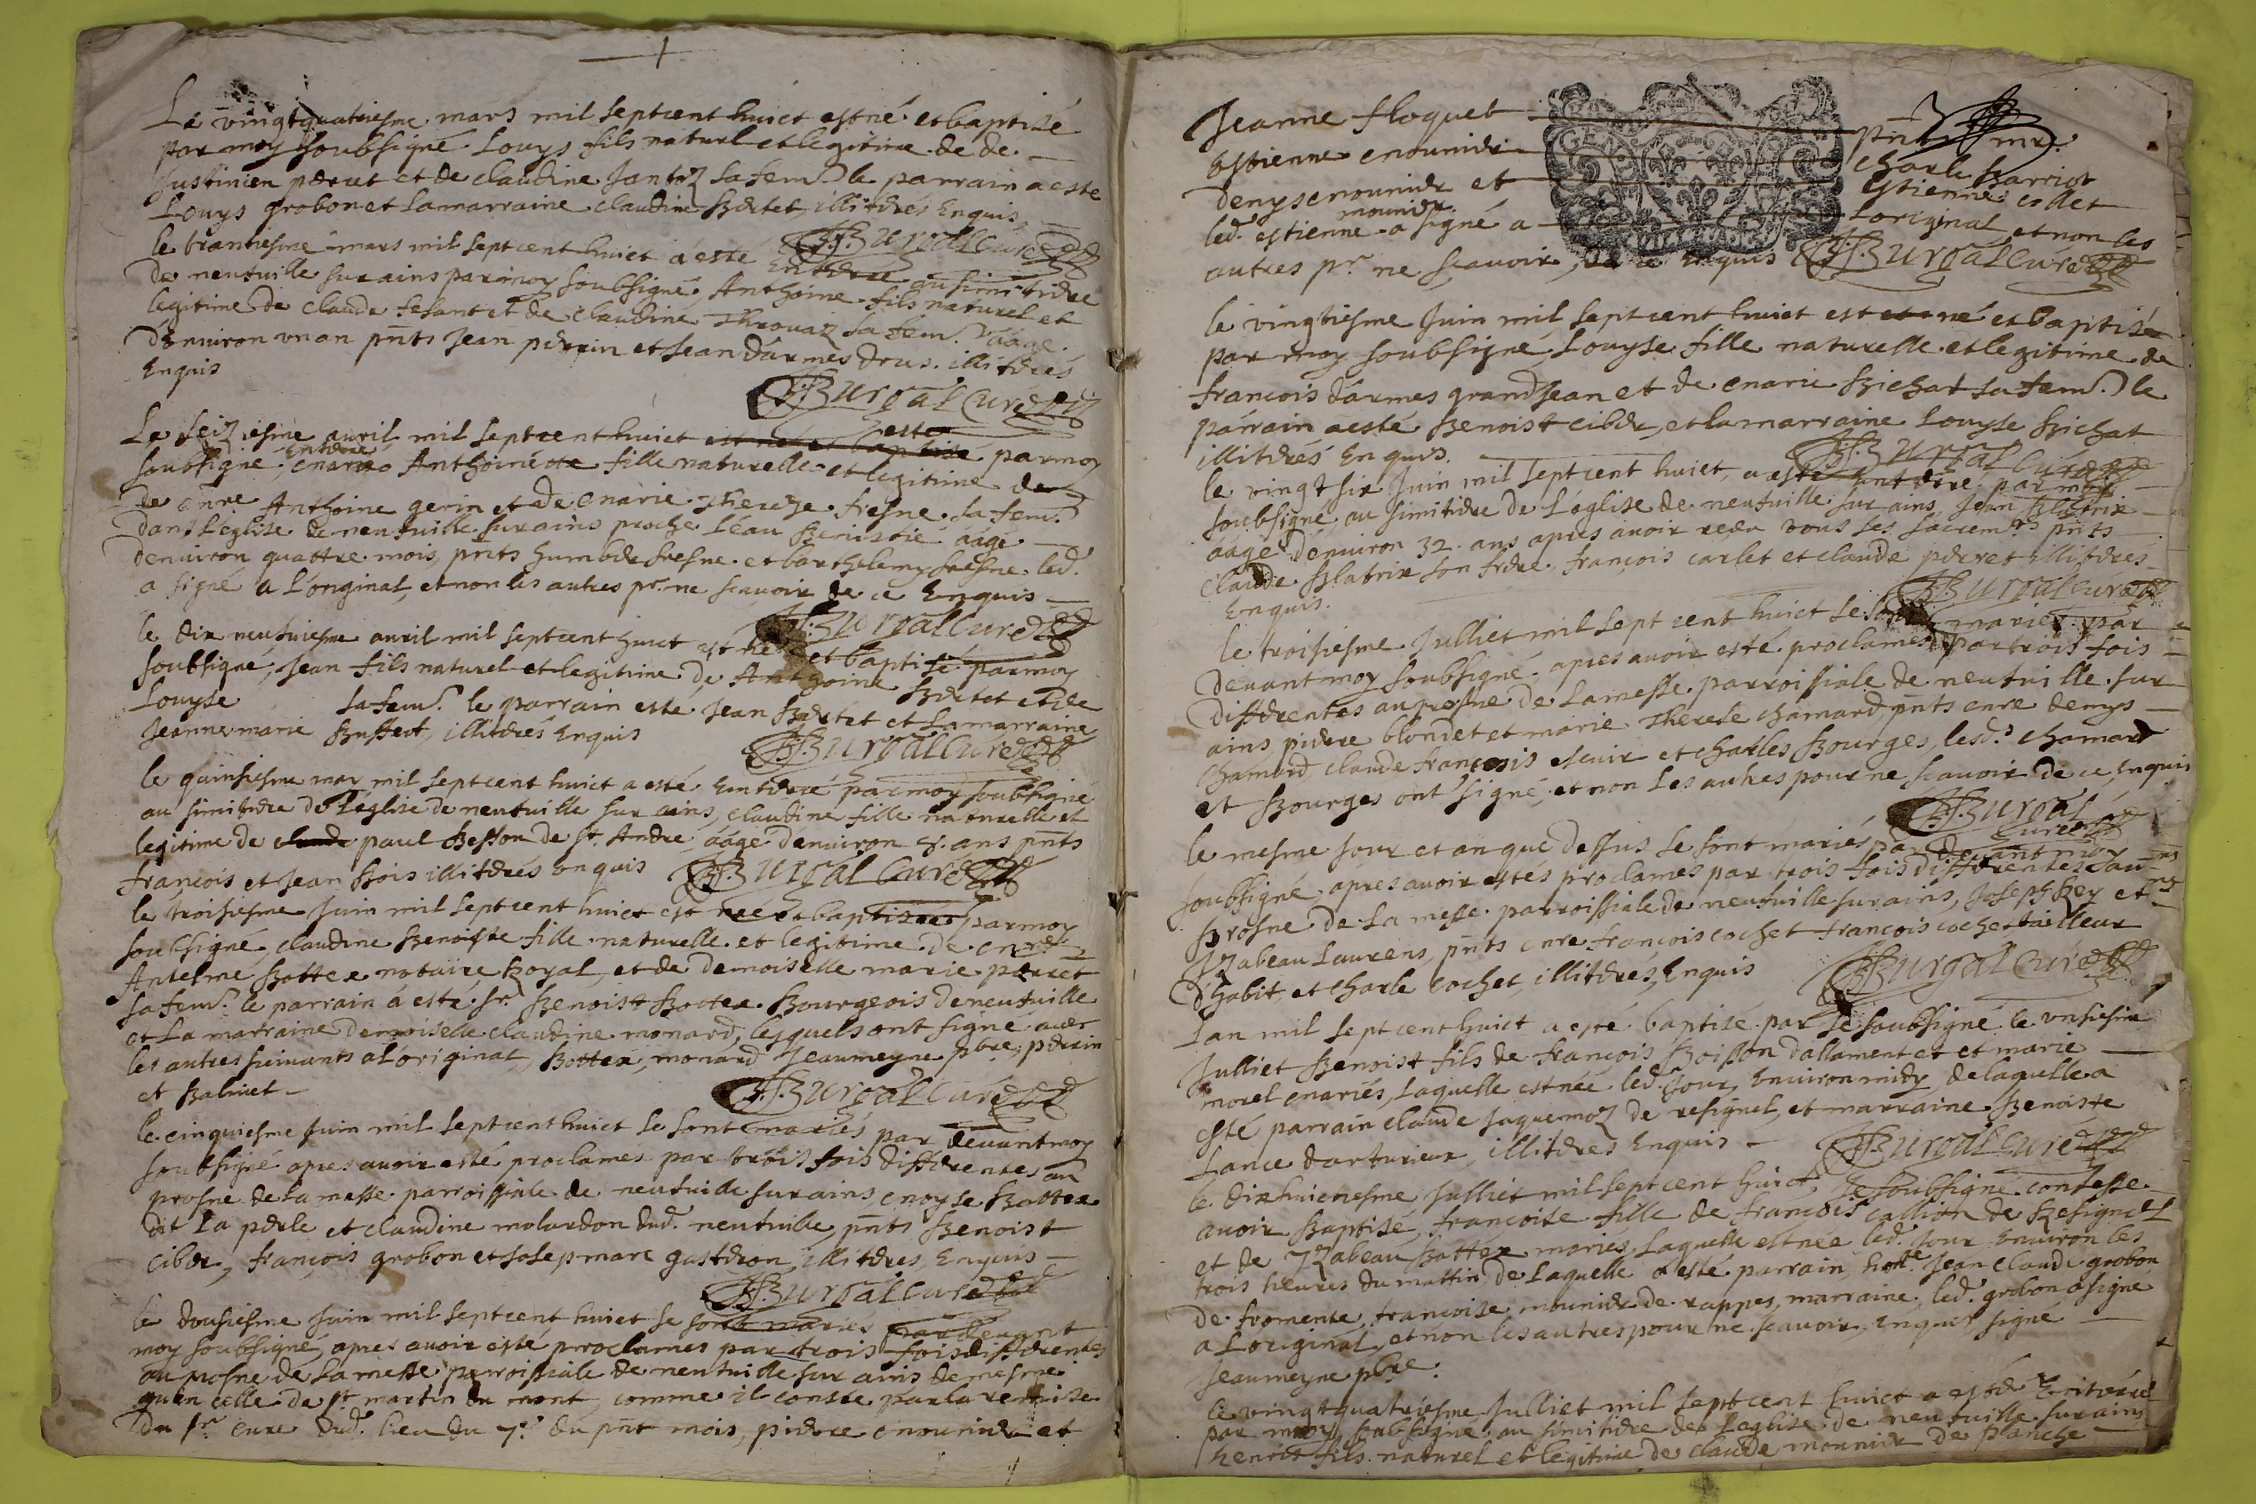 Le vingtquatriesme mars mil septcent huict est né et baptisé
par moy soubsigné Louys fils naturel et legitime de de
Justinien perret et de claudine Jantoz sa fem.e le parrain a esté
Louys grobon et la marraine claudine Bertet illitérés Enquis
le trantiesme mars mil septcent huict a esté Enterre au simitidre
JJ Burgal Curé
de neufville sur ains par moy soubsigné Anthoine fils naturel et
legitime de claude et de claudine sa fem.e aagé
d'environ un an pnts Jean perrin et Jean d'armes drus illitérés
Enquis
JJ Burgal Curé
Le seiziesme avril mil septcent huict esté par moy
soubsigné Enterre Anthoinette fille naturelle et legitime de
de mre Anthoine gerin et de marie Thereze fresne sa fem.e
dans l'eglise de neufville sur ains proche l'eau Benistié aagé
denviron quattre mois, pnts humber fresne et barthelemy fresne led.
a signé a L'original, et non les autres pr. ne scavoir de ce Enquis
JJ Burgal Curé
le dix neufviesme avril mil septcent huict est né et baptisé par moy
soubsigné, Jean fils naturel et legitime de Anthoine Bertet et de
Louyse sa fem.e le parrain esté Jean Bertet et la marraine
Jeanne marie Buffect, illitérés Enquis
JJ Burgal Curé
le quinsiesme may mil septcent huict a esté Enterré par moy soubsigné
au simitidre de l'église de neufville sur ains, claudine fille naturelle et
legitime de paul Besson de st. André, aagé denviron 8. ans pnts
francois et Jean Bois illitérés enquis
JJ Burgal Curé
le troisiesme Juin mil septcent huict est née et baptisée par moy
soubsigné, claudine Benoiste fille naturelle et legitime de mre
Antelme Bottex notaire Royal, et de demoiselle marie perret
sa fem.e le parrain a esté sr. Benoist Bottex Bourgeois de neufville
et La marraine demoiselle claudine monard, lesquels ont signé avec
les autres suivants a L'original, Bottex, monard Jeaumeyne pbre, perrin
et Balivet
JJ Burgal Curé
le cinquiesme Juin mil septcent huict se sont mariés par devant moy
soubsigné apres avoir esté proclames par trois fois differentes au
prosne de la messe parroissiale de neufville sur ains moyse Bottex
dit La perle et claudine molardon dud. neufville, pnts Benoist
ciber, françois grobon et Josepmarc gustdron, illitérés, Enquis
JJ Burgal Curé
le dousiesme Juin mil septcent huict se sont mariés par devant
moy soubsigné, apres avoir esté proclames par trois fois differentes
au prosne de la messe parroissiale de neufville sur ains de mesme
qu'en celle de st. martin du mont, comme il conste par la remise
du sr. curé dud. Lieu du 7e. du pnt mois, pierre mounier et
Jeanne floquet pnts mre.
Estienne mounier charle Barriot
denys mounier et Estienne collet
led. estienne mounier a signé a Loriginal et non les
autres pr. ne scavoir, de ce Enquis
JJ Burgal Curé
le vingtiesme Juin mil septcent huict est né et baptisée
par moy soubsigné, Louyse fille naturelle et legitime de
francois d'armes grandjean et de marie Bichat sa fem.e le
parrain a esté Benoist ciber, et la marraine Louyse Bichat
illitérés Enquis.
JJ Burgal Curé
le vingt six Juin mil septcent huict, a esté enterre par moy
soubsigné au simitidre de L'église de neufville sur ains, Jean Blatrix
aagé denviron 32. ans apres avoir receu tous les sacrem.ts pnts
claude Blatrix son frére. françois carlet et claude perret illitérés
Enquis.
JJ Burgal Curé
le troisiesme Julliet mil sept cent huict se sont mariés par
devant moy soubsigné apres avoir esté proclamés par trois fois
differentes au prosne de la messe parroissiale de neufville sur
ains, pierre blondet et marie Therese chamard, pnts mre denys
chamard, claude francois et charles Bourges, lesd.s chamard
et Bourges ont signé, et non les autres pour ne scavoir de ce, Enquis
JJ Burgal
Curé
le mesme jour et an que dessus se sont mariés par devant moy
soubsigné, apres avoir estés proclames par trois fois differentes au
Prosne de la messe parroissiale de neufville sur ains, Joseph Rey et
Izabeau Laurens, pnts mre françois cochet francois cochet tailleur
d'habit, et charle cochet, illitérés, Enquis
JJ Burgal Curé
Lan mil septcent huict a esté baptisé par Je soubsigné le unsiesme
Julliet Benoist fils de francois Boisson d'allament et et marie
morel mariés, Laquelle est née led. Jour, Environ midy de laquelle a
esté parrain claude Jaquemoz de resignel, et marraine Benoiste
Lance darturieux, illitérés Enquis
JJ Burgal Curé
le dixhuictiesme Julliet mil septcent huict, Je soubsigné confesse
avoir Baptisé, françoise fille de françois callion de Resignel
et de Izabeau Bottex mariés, Laquelle est née led. Jour Environ les
trois heures du mattin, de laquelle a esté parrain, hon.te Jean claude grobon
de fromente, francoise mounier de rappes marraine, led. grobon a signé
a L'original, et non les autres pour ne scavoir, enquis, signé
Jeaumeyne pbre.
le vingt quatriesme Julliet mil septcent huict a esté Enterré
par moy soubsigné au simitidre de L'eglise de neufville sur ains
benoist fils naturel et legitime de claude mounier de planche